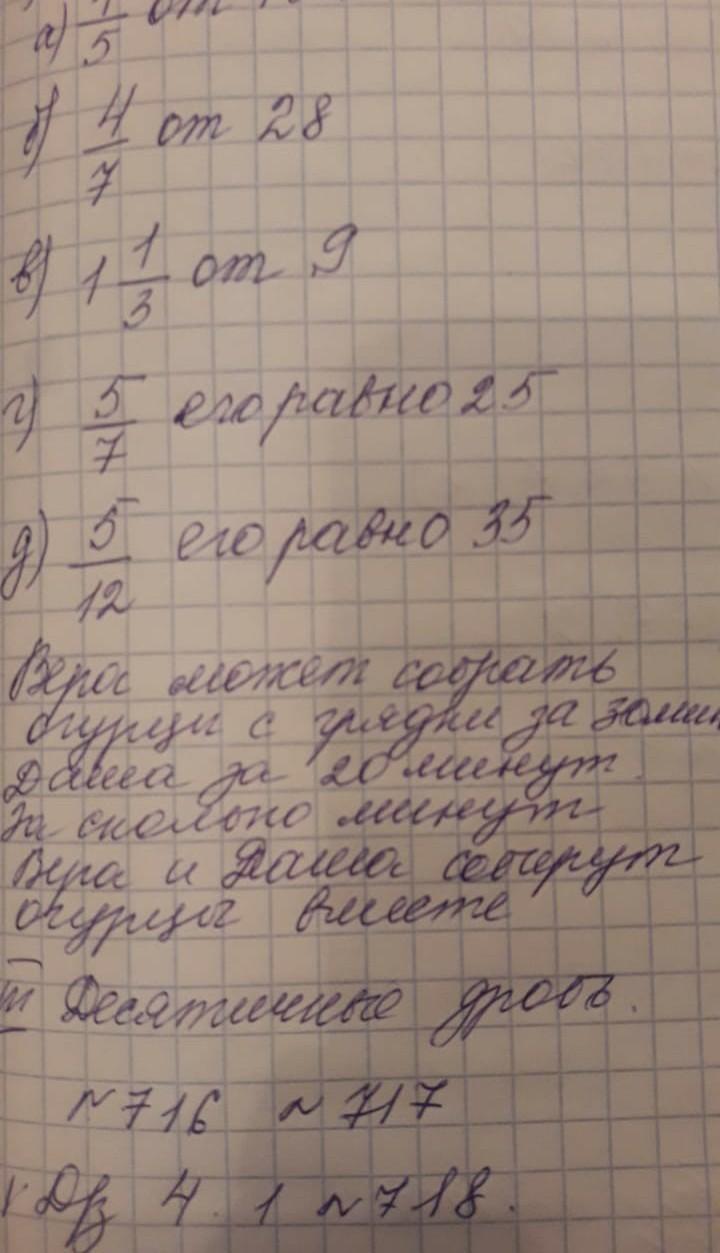 а) 1/5 от
б) 4/7 от 28
в) 1 1/3 от 9
г) 5/7 его равно 25
д) 5/12 его равно 35
Вера может собрать
огурцы с грядки за 30 мин
Даша за 20 минут.
За сколько минут
Вера и Даша соберут
огурцы вместе
III Десятичные дробь.
№716 №717
Дз 4.1 №718.